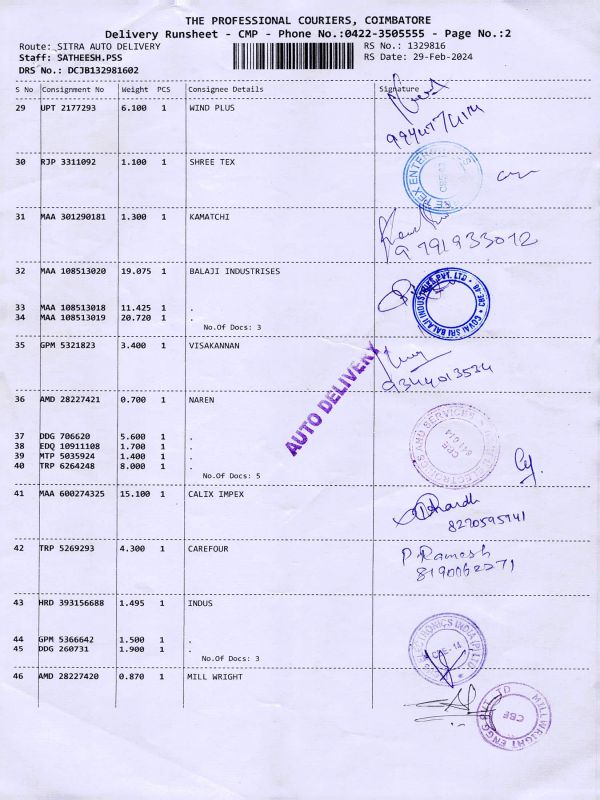 THE PROFESSIONAL COURIERS, COIMBATORE
Delivery Runsheet - CMP - Phone No.:0422-3505555 - Page No.:2
Route: SITRA AUTO DELIVERY RS No.: 1329816
Staff: SATHEESH.PSS RS Date: 29-Feb-2024
DRS No.: DCJB132981602
S No Consignment No Weight PCS Consignee Details Signature
29 UPT 2177293 6.100 1 WIND PLUS
30 RJP 3311092 1.100 1 SHREE TEX
31 MAA 301290181 1.300 1 KAMATCHI
9791933072
32 MAA 108513020 19.075 1 BALAJI INDUSTRISES
COVAI SRI BALAJI INDUSTRIES PVT. LTD
33 MAA 108513018 11.425 1 .
34 MAA 108513019 20.720 1 .
No.Of Docs: 3
35 GPM 5321823 3.400 1 VISAKANNAN
9344013534
AUTO DELIVERY
36 AMD 28227421 0.700 1 NAREN
37 DDG 706620 5.600 1 .
38 EDQ 10911108 1.700 1 .
39 MTP 5035924 1.400 1 .
40 TRP 6264248 8.000 1 .
No.Of Docs: 5
41 MAA 600274325 15.100 1 CALIX IMPEX
8270595941
42 TRP 5269293 4.300 1 CAREFOUR
P. Ramesh
8190062271
43 HRD 393156688 1.495 1 INDUS
44 GPM 5366642 1.500 1 .
45 DDG 260731 1.900 1 .
No.Of Docs: 3
46 AMD 28227420 0.870 1 MILL WRIGHT
MILLWRIGHT ENGG PVT LTD
CBE